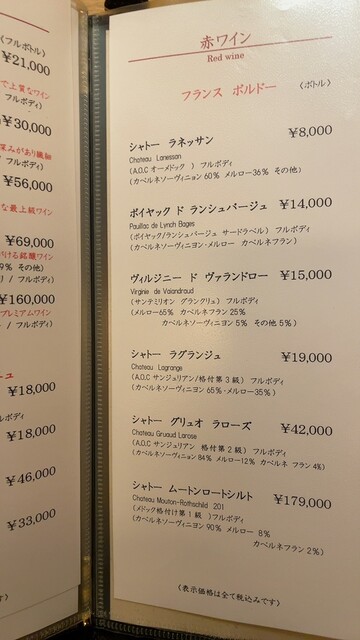 (フルボトル)
¥21,000
で上質なワイン
フルボディ)
¥30,000
深みがあり繊細
/ フルボディ)
¥56,000
な最上級ワイン
¥69,000
ける銘醸ワイン
9% その他)
/ フルボディ)
¥160,000
プレミアムワイン
/ フルボディ)
¥18,000
ルボディ
¥18,000
¥46,000
¥33,000
赤ワイン
Red wine
フランス ボルドー (ボトル)
シャトー ラネッサン ¥8,000
Chateau Lanessan
(A.O.C オーメドック ) フルボディ
(カベルネソーヴィニョン 60% メルロー36% その他)
ポイヤック ド ランシュバージュ ¥14,000
Pauillac de Lynch Bages
(ポイヤック/ランシュバージュ サードラベル) フルボディ
(カベルネソーヴィニヨン・メルロー カベルネフラン)
ヴィルジニー ド ヴァランドロー ¥15,000
Virginie de Valandraud
(サンテミリオン グラングリュ) フルボディ
(メルロー65% カベルネフラン 25%
カベルネソーヴィニヨン5% その他 5%)
シャトー ラグランジュ ¥19,000
Chateau Lagrange
(A.O.C サンジュリアン/格付第3級) フルボディ
(カベルネソーヴィニヨン 65%・メルロー35%)
シャトー グリュオ ラローズ ¥42,000
Chateau Gruaud Larose
(A.O.C サンジュリアン 格付第2級) フルボディ
(カベルネソーヴィニヨン 84% メルロー12% カベルネ フラン 4%)
シャトー ムートンロートシルト ¥179,000
Chateau Mouton-Rothschild 201
(メドック格付け第1級 )フルボディ
(カベルネソーヴィニヨン 90% メルロー 8%
カベルネフラン 2%)
(表示価格は全て税込みです)